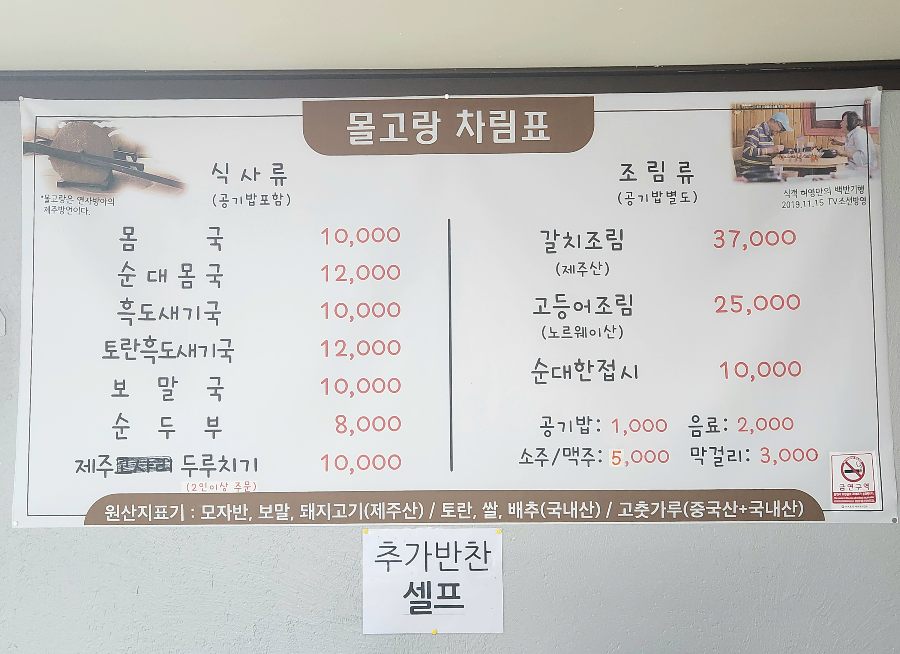 몰고랑 차림표
*몰고랑은 연자방아의
제주방언이다.
식사류
(공기밥포함)
몸국 10,000
순대몸국 12,000
흑도새기국 10,000
토란흑도새기국 12,000
보말국 10,000
순두부 8,000
제주 두루치기 10,000
(2인이상 주문)
조림류
(공기밥별도)
식객 허영만의 백반기행
2019.11.15 TV조선방영
갈치조림 37,000
(제주산)
고등어조림 25,000
(노르웨이산)
순대한접시 10,000
공기밥: 1,000 음료: 2,000
소주/맥주: 5,000 막걸리: 3,000
금연구역
원산지표기 : 모자반, 보말, 돼지고기(제주산) / 토란, 쌀, 배추(국내산) / 고춧가루(중국산+국내산)
추가반찬
셀프